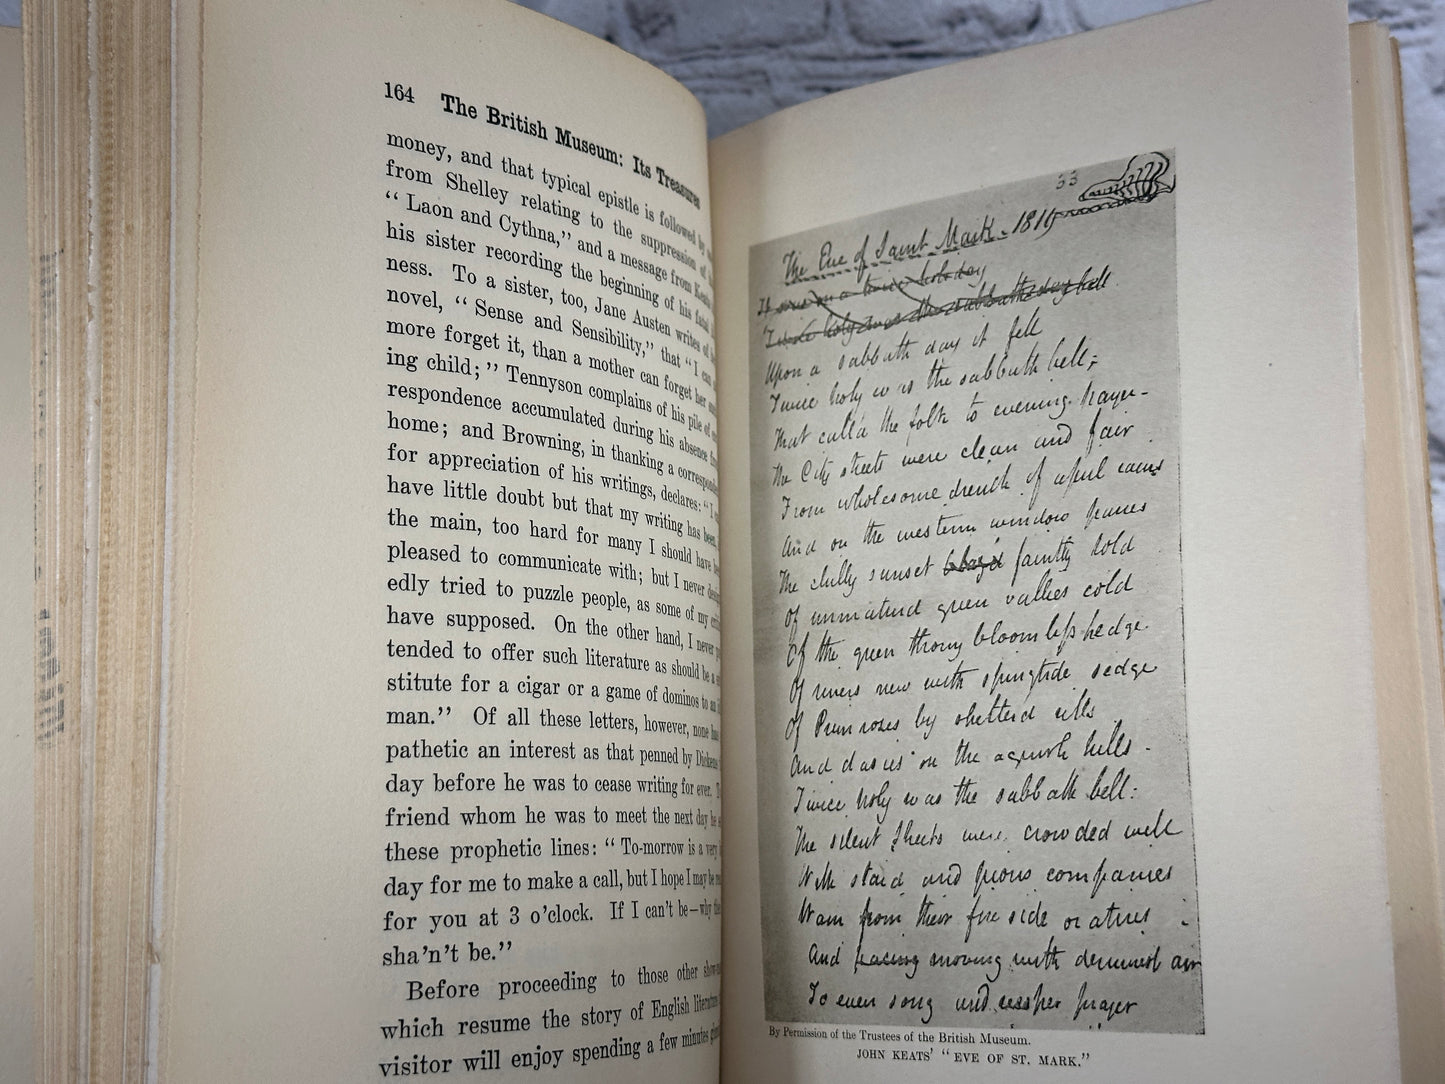 164 The British Museum: Its Treasures
money, and that typical epistle is followed by
from Shelley relating to the suppression of
“ Laon and Cythna,” and a message from Keats
his sister recording the beginning of his fatal
ness. To a sister, too, Jane Austen writes of
novel, “ Sense and Sensibility,” that “ I can
more forget it, than a mother can forget her
ing child; ” Tennyson complains of his pile of
respondence accumulated during his absence
home; and Browning, in thanking a correspondent
for appreciation of his writings, declares: “ I
have little doubt but that my writing has been,
the main, too hard for many I should have
pleased to communicate with; but I never
edly tried to puzzle people, as some of my
have supposed. On the other hand, I never
tended to offer such literature as should be a
stitute for a cigar or a game of dominos to an
man.” Of all these letters, however, none
pathetic an interest as that penned by Dickens
day before he was to cease writing for ever.
friend whom he was to meet the next day he
these prophetic lines: “ To-morrow is a very
day for me to make a call, but I hope I may be
for you at 3 o'clock. If I can't be—why
sha'n't be.”
Before proceeding to those other
which resume the story of English
visitor will enjoy spending a few minutes
33
The Eve of Saint Mark. 1819
Twice holy was the sabbath day bell
Upon a sabbath day it fell
Twice holy was the sabbath bell,
That call'd the folk to evening prayer-
The City streets were clean and fair
From wholesome drench of April rains
And on the western window panes
The chilly sunset faintly told
Of unmatur'd green vallies cold
Of the green thorny bloomless hedge.
Of rivers new with springtide sedge
Of Primroses by shelter'd rills
And dasies on the aguish hills.
Twice holy was the sabbath bell:
The silent streets were crowded well
With staid and pious companies
Warm from their fire side oratries
And pacing moving with demurest air
To even song and vesper prayer
By Permission of the Trustees of the British Museum.
JOHN KEATS' “ EVE OF ST. MARK.”